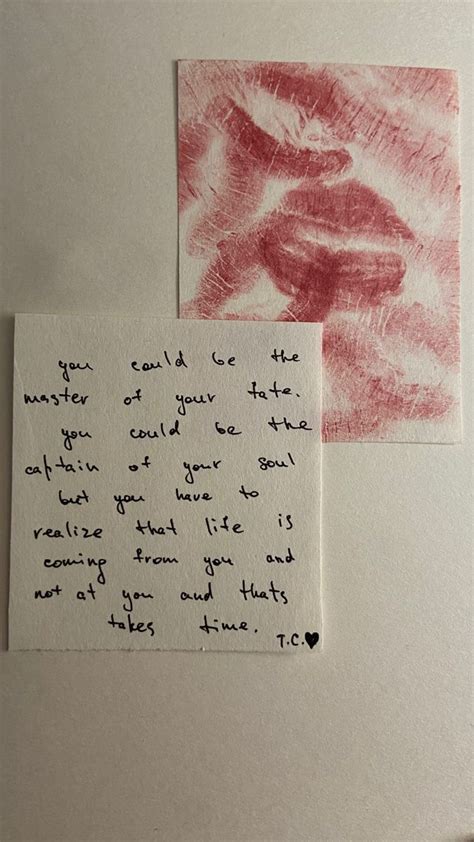 you could be the
master of your fate.
you could be the
captain of your soul
but you have to
realize that life is
coming from you and
not at you and thats
takes time.
T.C.♥